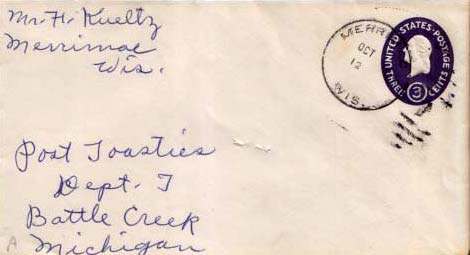 Mr. H. Kueltz
Merrimac
Wis.
MERR
OCT
12
WIS.
UNITED STATES • POSTAGE
THREE 3 CENTS
Post Toasties
Dept. T
Battle Creek
A Michigan